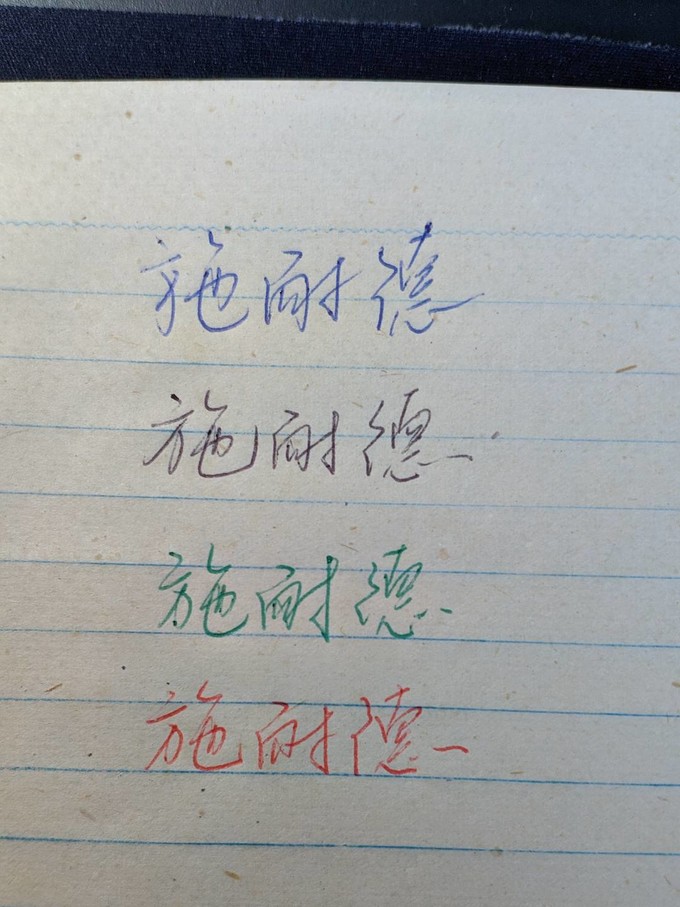 施耐德
施耐德
施耐德
施耐德